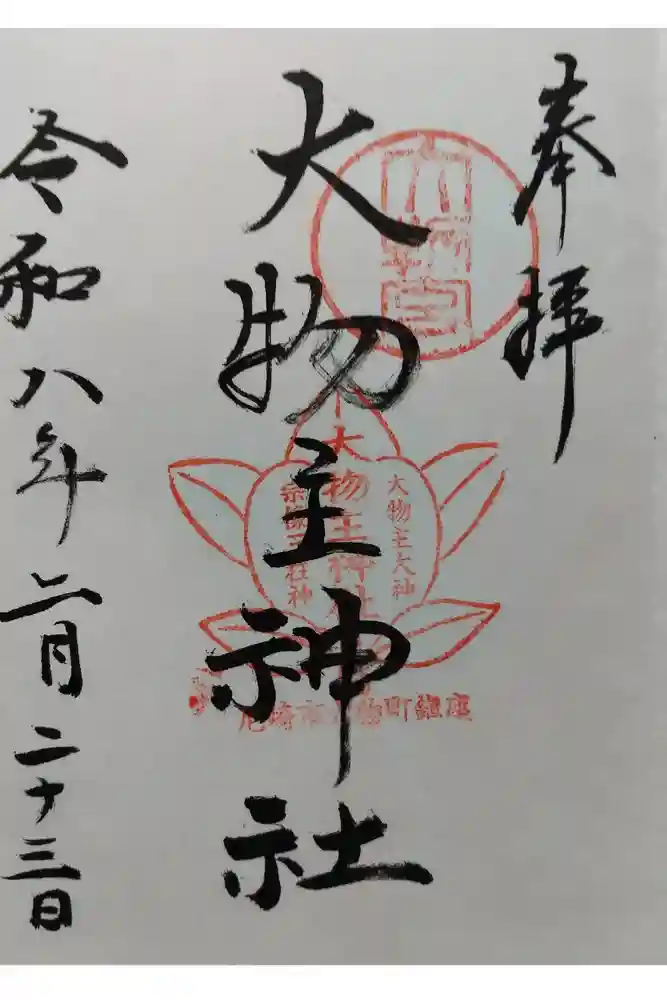 奉拝
大物主神社
令和八年二月二十三日
大物主大神
大物主神社
宗像三柱神
尼崎市大物町鎮座